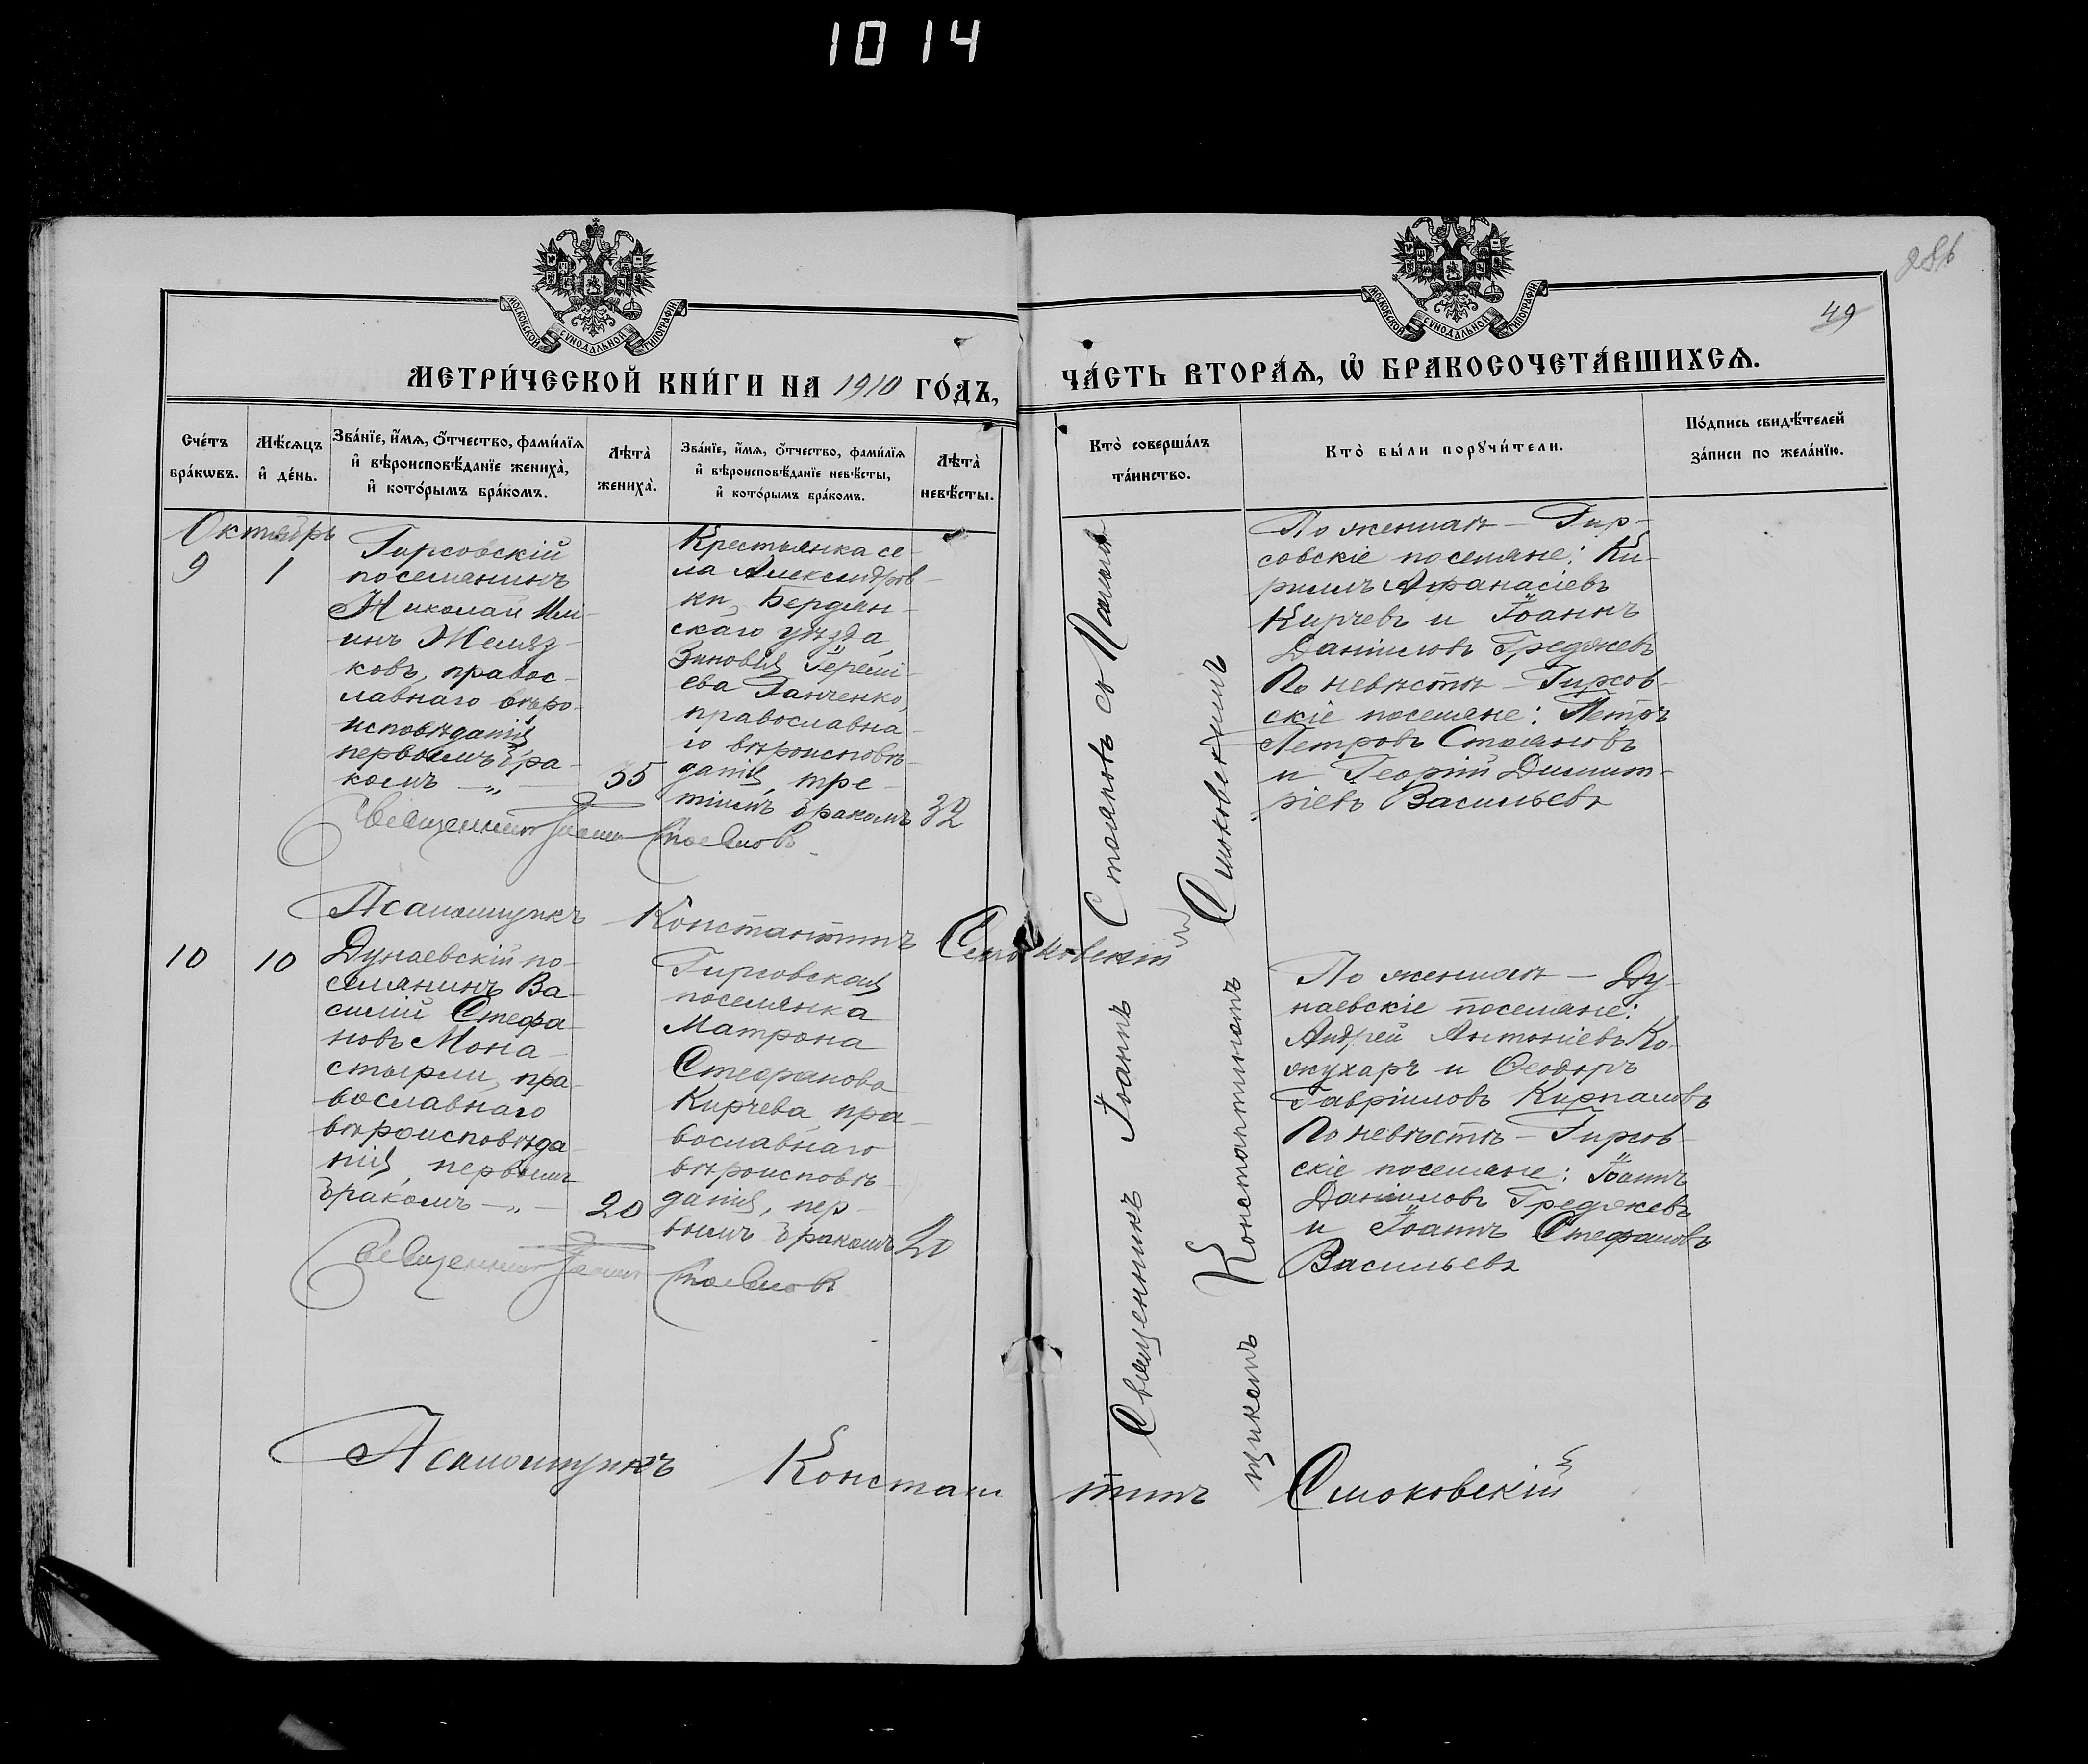 1014
286
49
МОСКОВСКОЙ СѴНОДАЛЬНОЙ ТИПОГРАФІИ
МОСКОВСКОЙ СѴНОДАЛЬНОЙ ТИПОГРАФІИ
МЕТРИ́ЧЕСКОЙ КНИ́ГИ НА 1910 ГО́ДЪ,
ЧА́СТЬ ВТОРА́Ѧ, Ѡ҆ БРАКОСОЧЕТА́ВШИХСѦ.
Сче́тъ
бра́кѡвъ.
Мѣ́сѧцъ
и҆ де́нь.
Зва́нїе, и҆́мѧ, ѻ҆́тчество, фами́лїѧ
и҆ вѣроисповѣ́данїе жениха̀,
и҆ кото́рымъ бра́комъ.
Лѣта̀
жениха̀.
Зва́нїе, и҆́мѧ, ѻ҆́тчество, фами́лїѧ
и҆ вѣроисповѣ́данїе невѣ́сты,
и҆ кото́рымъ бра́комъ.
Лѣта̀
невѣ́сты.
Кто̀ соверша́лъ
та́инство.
Кто̀ бы́ли порꙋчи́тели.
По́дпись свидѣ́телей
за́писи по жела́нїю.
Октябрь
9
1
Гирсовскій
поселянинъ
Николай Или-
инъ Желяз-
ковъ, правос-
лавнаго вѣро-
исповѣданія
первымъ бра-
комъ — „ —
35
Крестьянка се-
ла Александров-
ки, Бердян-
скаго уѣзда,
Зиновія Іереми-
ева Ганченко,
православна-
го вѣроисповѣ-
данія, тре-
тіимъ бракомъ
32
Священникъ Іоаннъ Стояновъ
Псаломщикъ Константинъ Смоковскій
По женихѣ — Гир-
совскіе поселяне: Ки-
риллъ Афанасіевъ
Кирчевъ и Іоаннъ
Даніиловъ Греджевъ
По невѣстѣ — Гирсов-
скіе поселяне: Петръ
Петровъ Стояновъ
и Георгій Димит-
ріевъ Васильевъ
10
10
Дунаевскій по-
селянинъ Ва-
силій Стефа-
новъ Мона-
стырли, пра-
вославнаго
вѣроисповѣда-
нія, первымъ
бракомъ — „ —
20
Гирсовская
поселянка
Матрона
Стефанова
Кирчева, пра-
вославнаго
вѣроисповѣ-
данія, пер-
вымъ бракомъ
20
Священникъ Іоаннъ Стояновъ
По женихѣ — Ду-
наевскіе поселяне:
Андрей Антоніевъ Ко-
жухаръ и Ѳеодоръ
Гавріиловъ Кирпаловъ
По невѣстѣ — Гирсов-
скіе поселяне: Іоаннъ
Даніиловъ Греджевъ
и Іоаннъ Стефановъ
Васильевъ
Священникъ Іоаннъ Стояновъ съ Псалом-
щикомъ Константиномъ Смоковскимъ
Псаломщикъ Константинъ Смоковскій